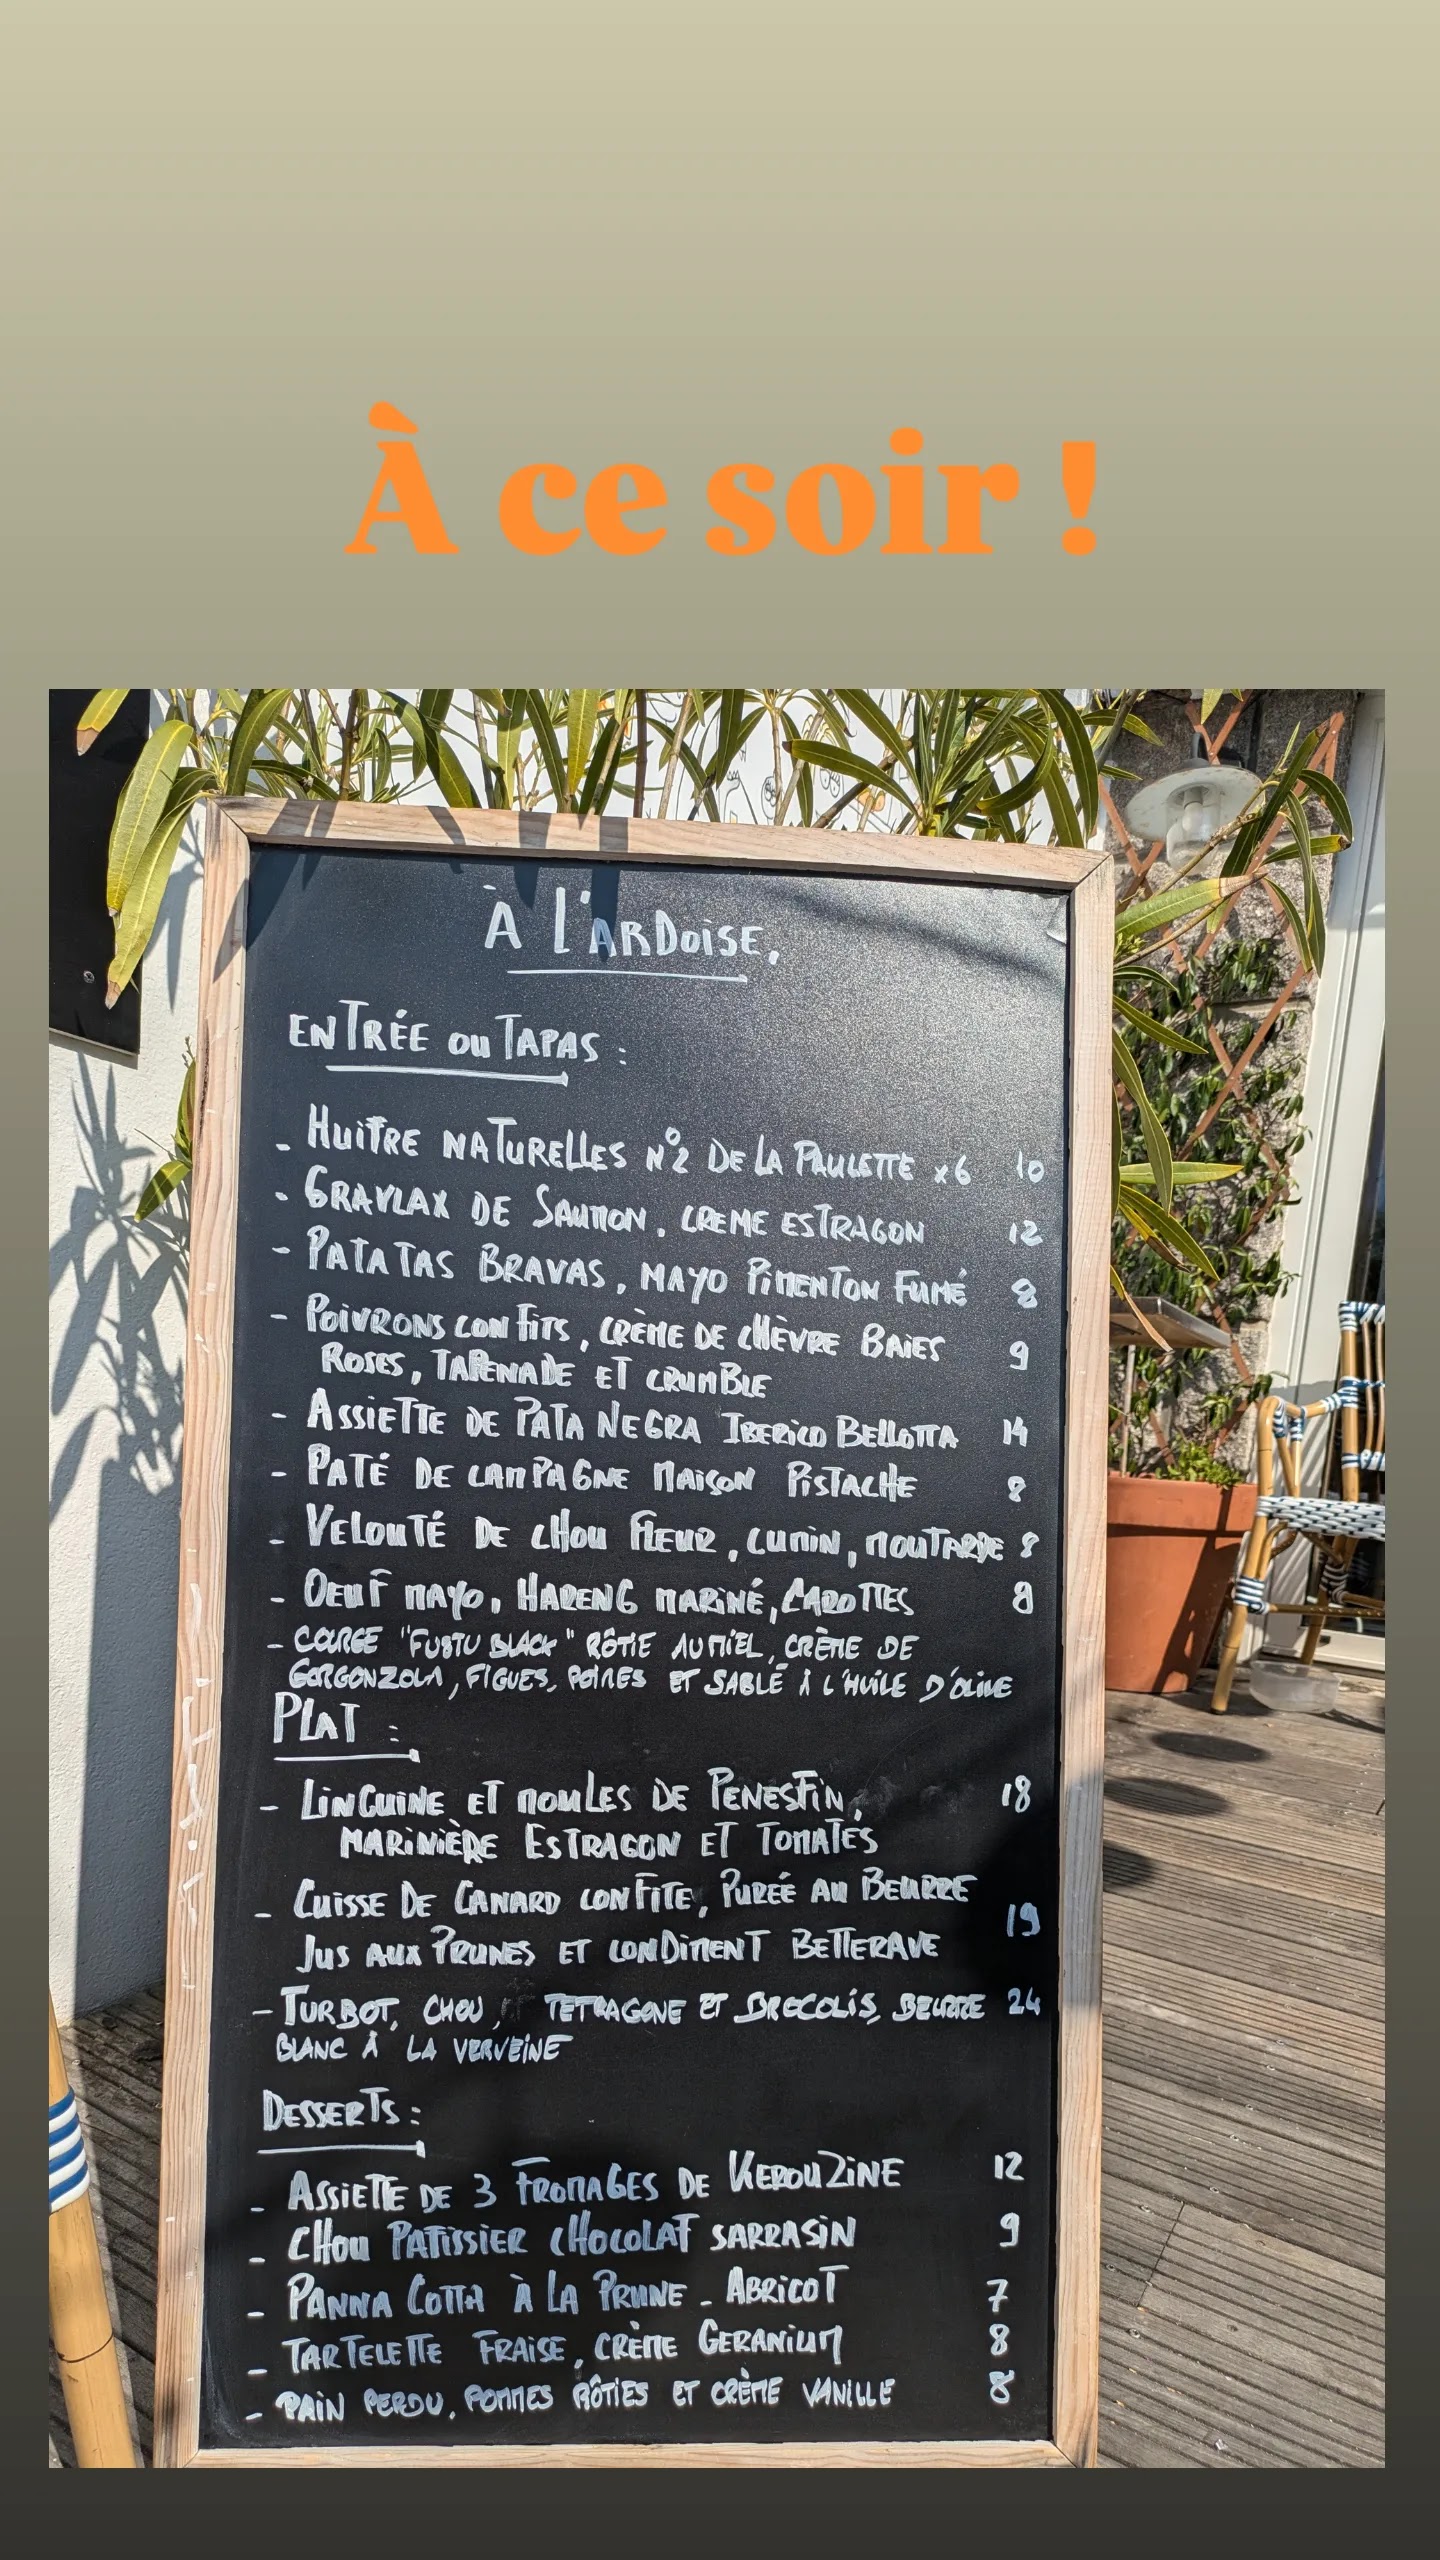 À ce soir !
À L'ARDOISE,
ENTRÉE OU TAPAS :
- HUITRE NATURELLES N°2 DE LA PAULETTE x6 10
- GRAVLAX DE SAUMON, CREME ESTRAGON 12
- PATATAS BRAVAS, MAYO PIMENTON FUMÉ 8
- POIVRONS CONFITS, CRÈME DE CHÈVRE BAIES 9
ROSES, TAPENADE ET CRUMBLE
- ASSIETTE DE PATA NEGRA IBERICO BELLOTTA 14
- PATÉ DE CAMPAGNE MAISON PISTACHE 8
- VELOUTÉ DE CHOU FLEUR, CUMIN, MOUTARDE 8
- OEUF MAYO, HARENG MARINÉ, CAROTTES 8
- COURGE "FUBTU BLACK" RÔTIE AU MIEL, CRÈME DE
GORGONZOLA, FIGUES, POIRES ET SABLÉ À L'HUILE D'OLIVE
PLAT :
- LINGUINE ET MOULES DE PENESTIN, 18
MARINIÈRE ESTRAGON ET TOMATES
- CUISSE DE CANARD CONFITE, PURÉE AU BEURRE
19
JUS AUX PRUNES ET CONDIMENT BETTERAVE
- TURBOT, CHOU, TETRAGONE ET BROCOLIS, BEURRE 24
BLANC À LA VERVEINE
DESSERTS :
- ASSIETTE DE 3 FROMAGES DE KEROUZINE 12
- CHOU PATISSIER CHOCOLAT SARRASIN 9
- PANNA COTTA À LA PRUNE - ABRICOT 7
- TARTELETTE FRAISE, CRÈME GERANIUM 8
- PAIN PERDU, POMMES RÔTIES ET CRÈME VANILLE 8